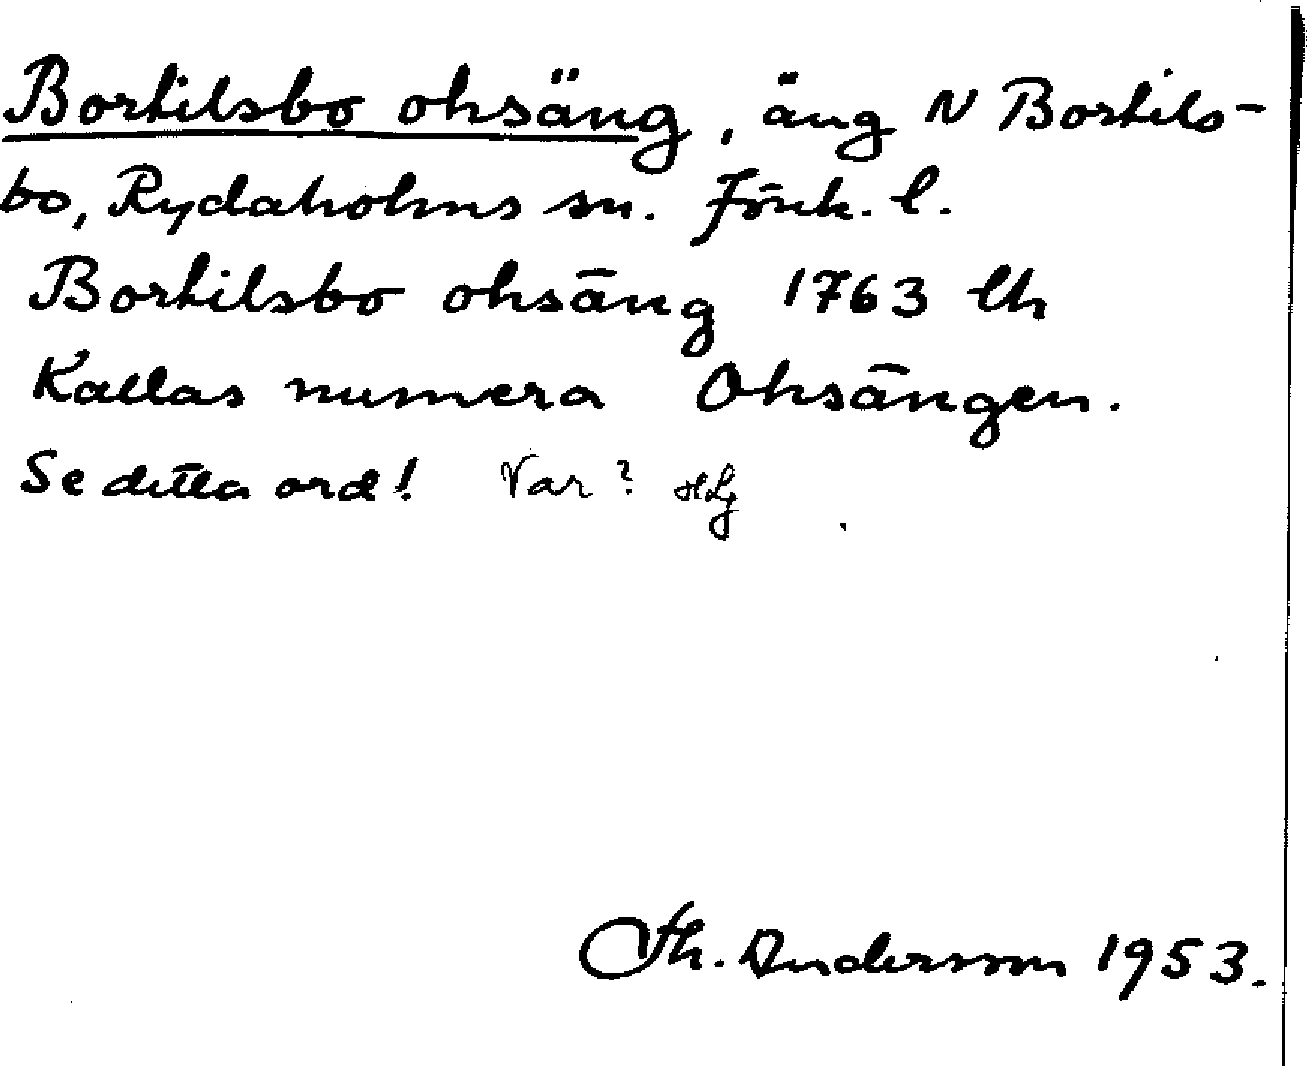 Bortilsbo ohsäng, äng N Bortils-
bo, Rydaholms sn. Jönk. l.
Bortilsbo ohsäng 1763 lh
Kallas numera Ohsängen.
Se detta ord! Var? HLj
Th. Andersson 1953.